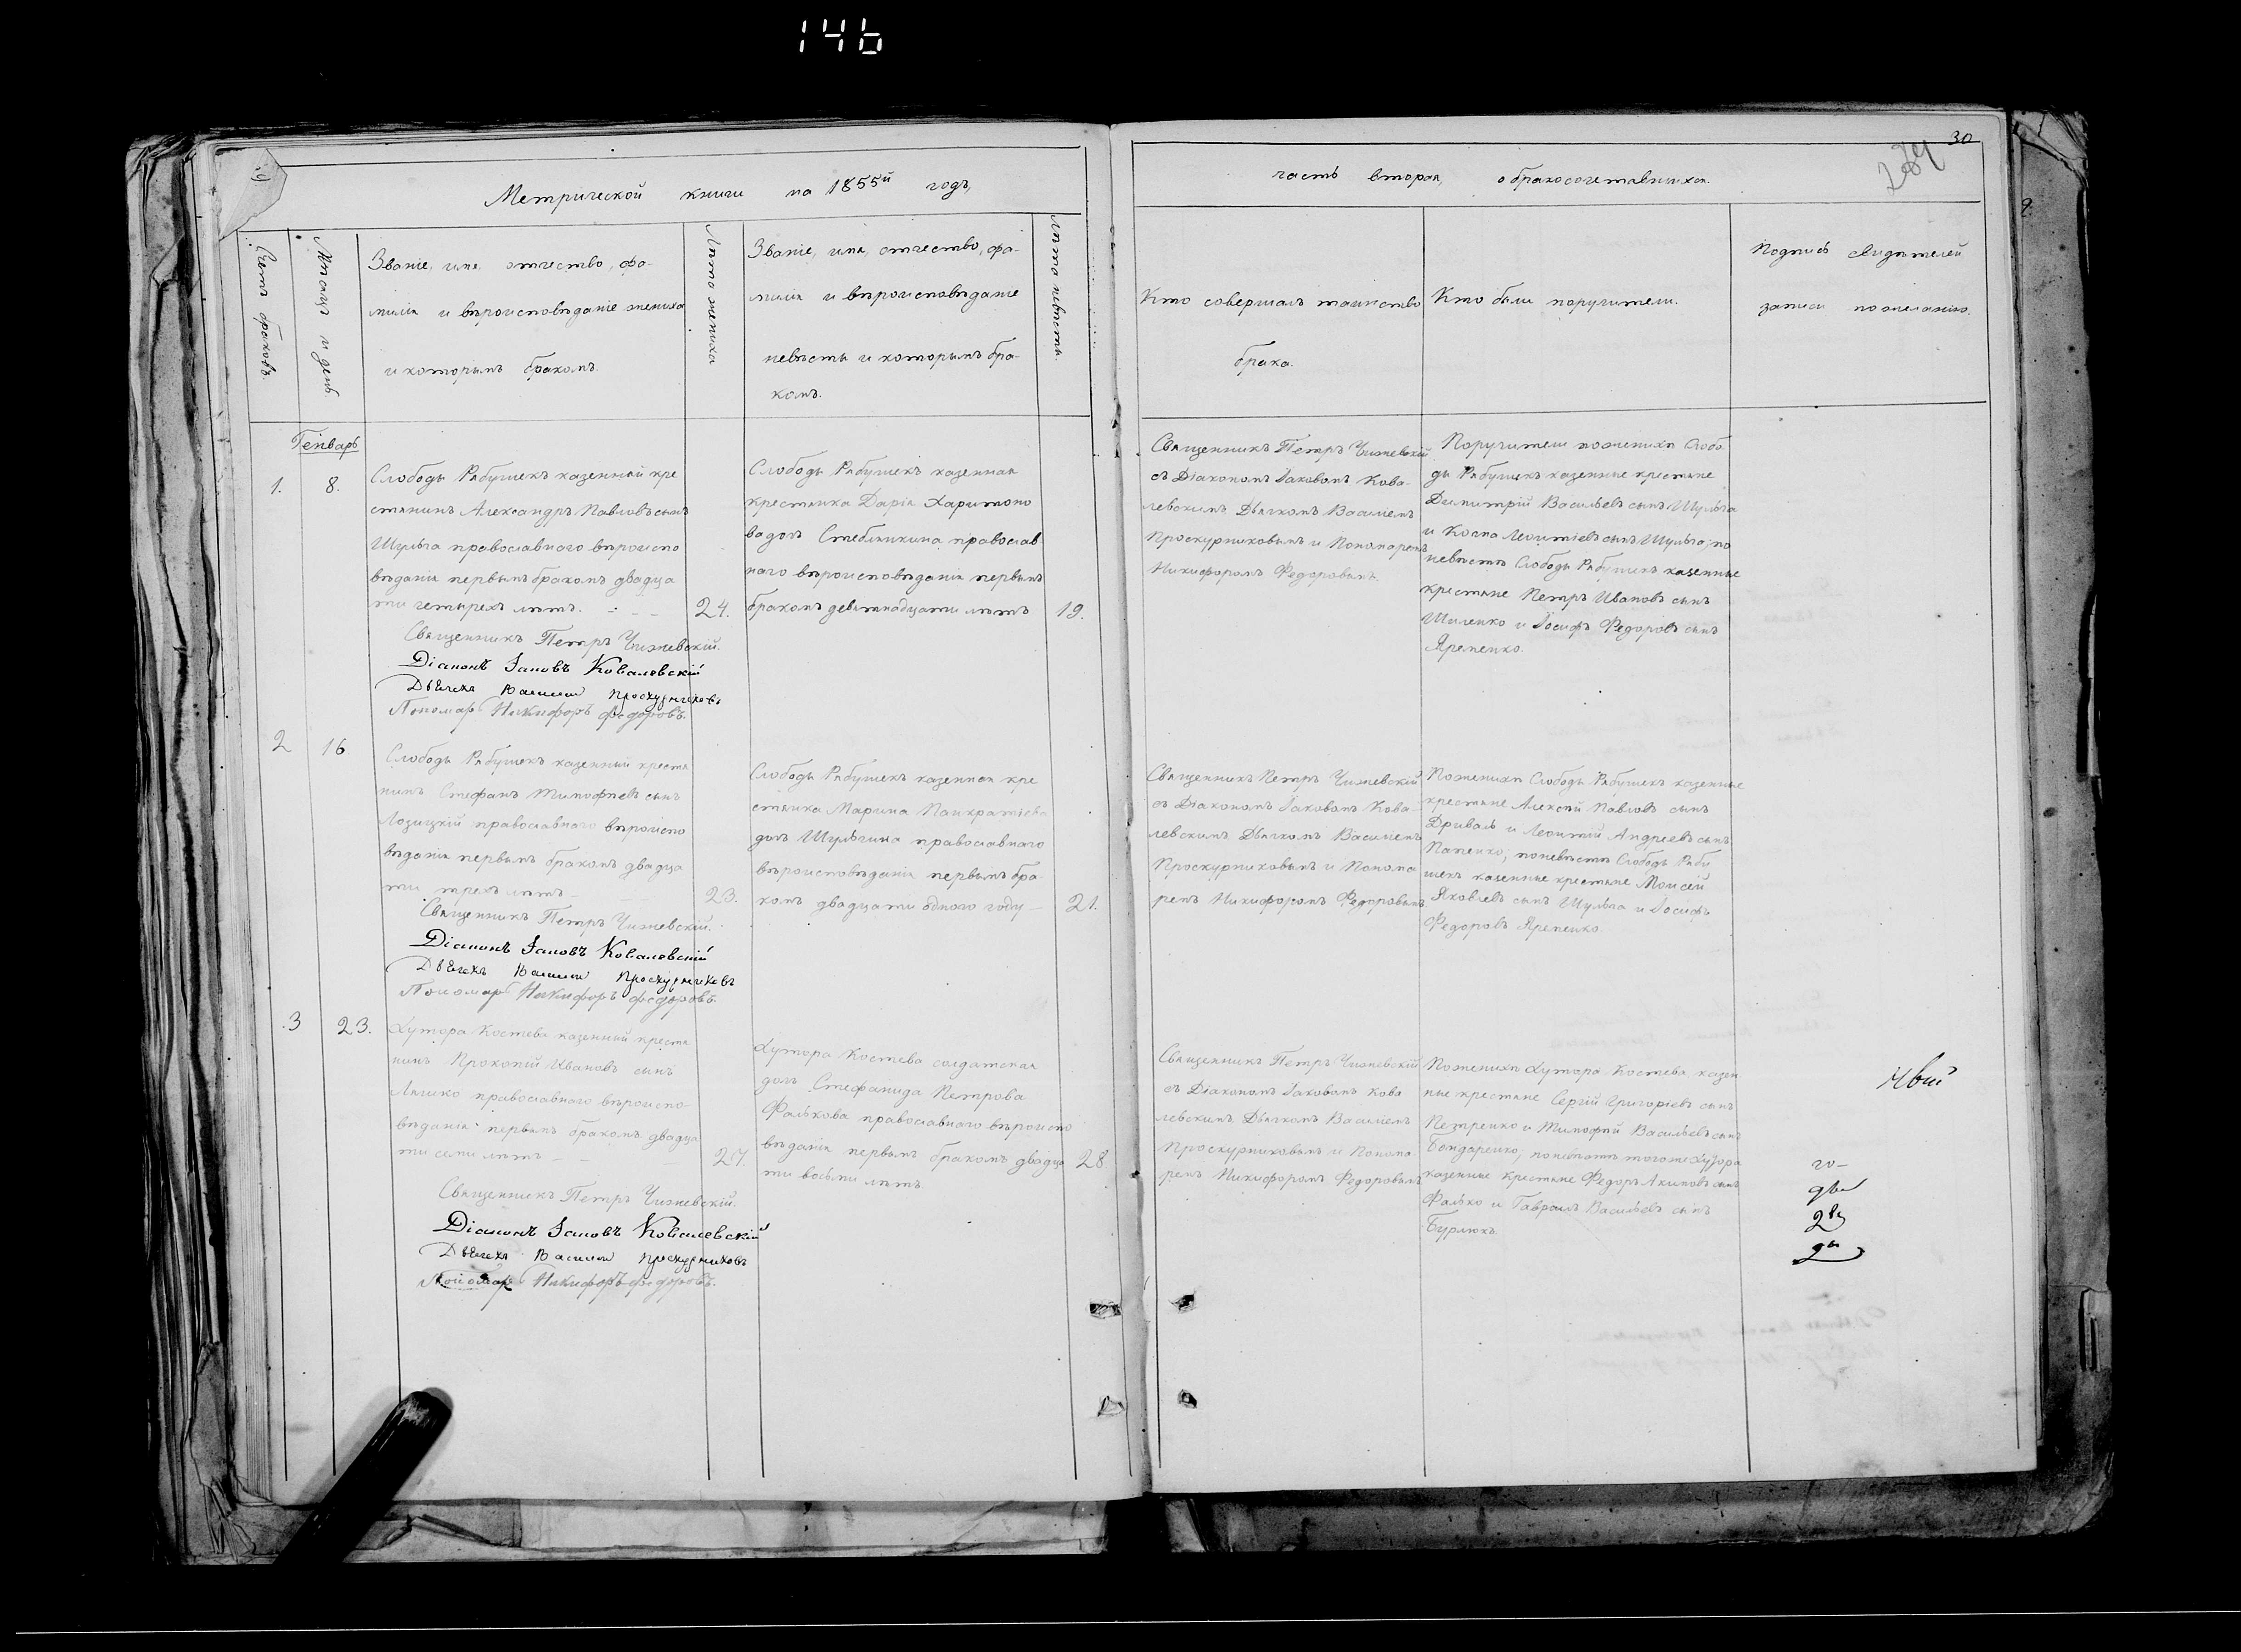 146
30
Метрической книги на 1855й годъ,
часть вторая, о бракосочетавшихся.
Счетъ браковъ.
Мѣсяцъ и день
Званіе, имя, отчество, фа-
милія и вѣроисповѣданіе жениха
и которымъ бракомъ.
Лѣта жениха
Званіе, имя, отчество, фа-
милія и вѣроисповѣданіе
невѣсты и которымъ бра-
комъ.
Лѣта невѣсты.
Кто совершалъ таинство
брака.
Кто были поручители.
Подпись свидѣтелей
записи по желанію.
Генварь
1.
8.
Слободы Рябушекъ казенный кре
стянинъ Александръ Павловъ сынъ
Шульга православнаго вѣроиспо
вѣданія первымъ бракомъ двадца
ти четырехъ лѣтъ.
24.
Священникъ Петръ Чижевскій.
Діаконъ Іаковъ Ковалевскій
Дьячекъ Василій Проскурниковъ
Пономарь Никифоръ Федоровъ.
Слободы Рябушекъ казенная
крестянка Дарія Харитоно
ва дочь Стеблянкина православ
наго вѣроисповѣданія первымъ
бракомъ девятнадцати лѣтъ
19.
Священникъ Петръ Чижевскій
съ Діакономъ Іаковомъ Кова-
левскимъ Дьячкомъ Василіемъ
Проскурниковымъ и Пономаремъ
Никифоромъ Федоровымъ.
Поручители по женихѣ Слобо
ды Рябушекъ казенные крестяне
Димитрій Васильевъ сынъ Шульга
и Косма Леонтіевъ сынъ Шульга; по
невѣстѣ Слободы Рябушекъ казенные
крестяне Петръ Ивановъ сынъ
Шиленко и Іосифъ Федоровъ сынъ
Яременко.
2
16
Слободы Рябушекъ казенный крестя
нинъ Стефанъ Тимофѣевъ сынъ
Лозицкій православнаго вѣроиспо
вѣданія первымъ бракомъ двадца
ти трехъ лѣтъ
23.
Священникъ Петръ Чижевскій.
Діаконъ Іаковъ Ковалевскій
Дьячекъ Василій Проскурниковъ
Пономарь Никифоръ Федоровъ.
Слободы Рябушекъ казенная кре
стянка Марина Панкратіева
дочь Шульгина православнаго
вѣроисповѣданія первымъ бра-
комъ двадцати одного году
21.
Священникъ Петръ Чижевскій
съ Діакономъ Іаковомъ Кова-
левскимъ Дьячкомъ Василіемъ
Проскурниковымъ и Понома
ремъ Никифоромъ Федоровымъ
По женихѣ Слободы Рябушекъ казенные
крестяне Алексѣй Павловъ сынъ
Дриваль и Леонтій Андреевъ сынъ
Папенко; по невѣстѣ Слободы Рябу
шекъ казенные крестяне Моисей
Яковлевъ сынъ Шульга и Іосифъ
Федоровъ Яременко
3
23.
Хутора Костева казенный крестя
нинъ Прокопій Ивановъ сынъ
православнаго вѣроиспо-
вѣданія первымъ бракомъ двадца
ти семи лѣтъ
27.
Священникъ Петръ Чижевскій.
Діаконъ Іаковъ Ковалевскій
Дьячекъ Василій Проскурниковъ
Пономарь Никифоръ Федоровъ.
Хутора Костева солдатская
дочь Стефанида Петрова
Фалькова православнаго вѣроиспо
вѣданія первымъ бракомъ двадца
ти восьми лѣтъ
28.
Священникъ Петръ Чижевскій
съ Діакономъ Іаковомъ Кова
левскимъ Дьячкомъ Василіемъ
Проскурниковымъ и Понома
ремъ Никифоромъ Федоровымъ
По женихѣ Хутора Костева казен
ные крестяне Сергій Григоріевъ сынъ
Петренко и Тимофей Васильевъ сынъ
Бондаренко; по невѣстѣ того же Хутора
казенные крестяне Федоръ Акимовъ сынъ
Фалько и Гавріилъ Васильевъ сынъ
Бурлюкъ.